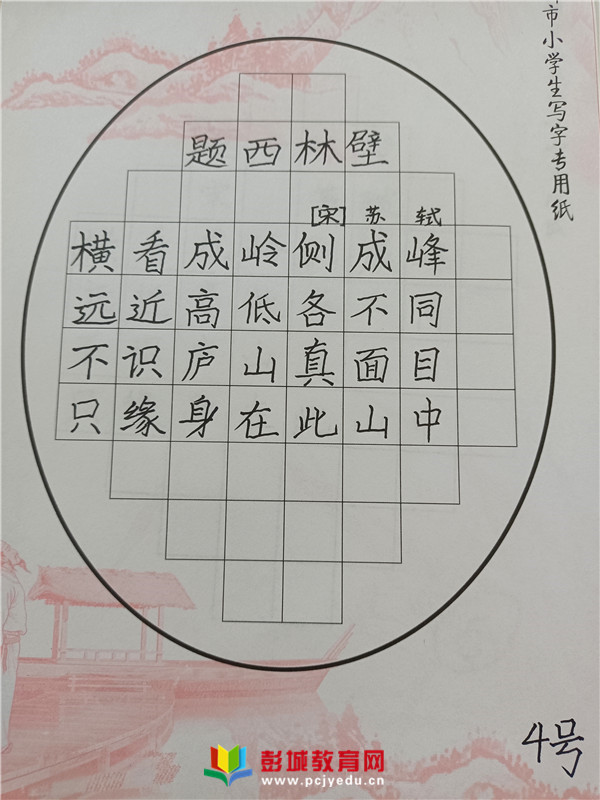 市小学生写字专用纸
题西林壁
[宋] 苏轼
横看成岭侧成峰
远近高低各不同
不识庐山真面目
只缘身在此山中
4号
彭城教育网
www.pcjyedu.cn